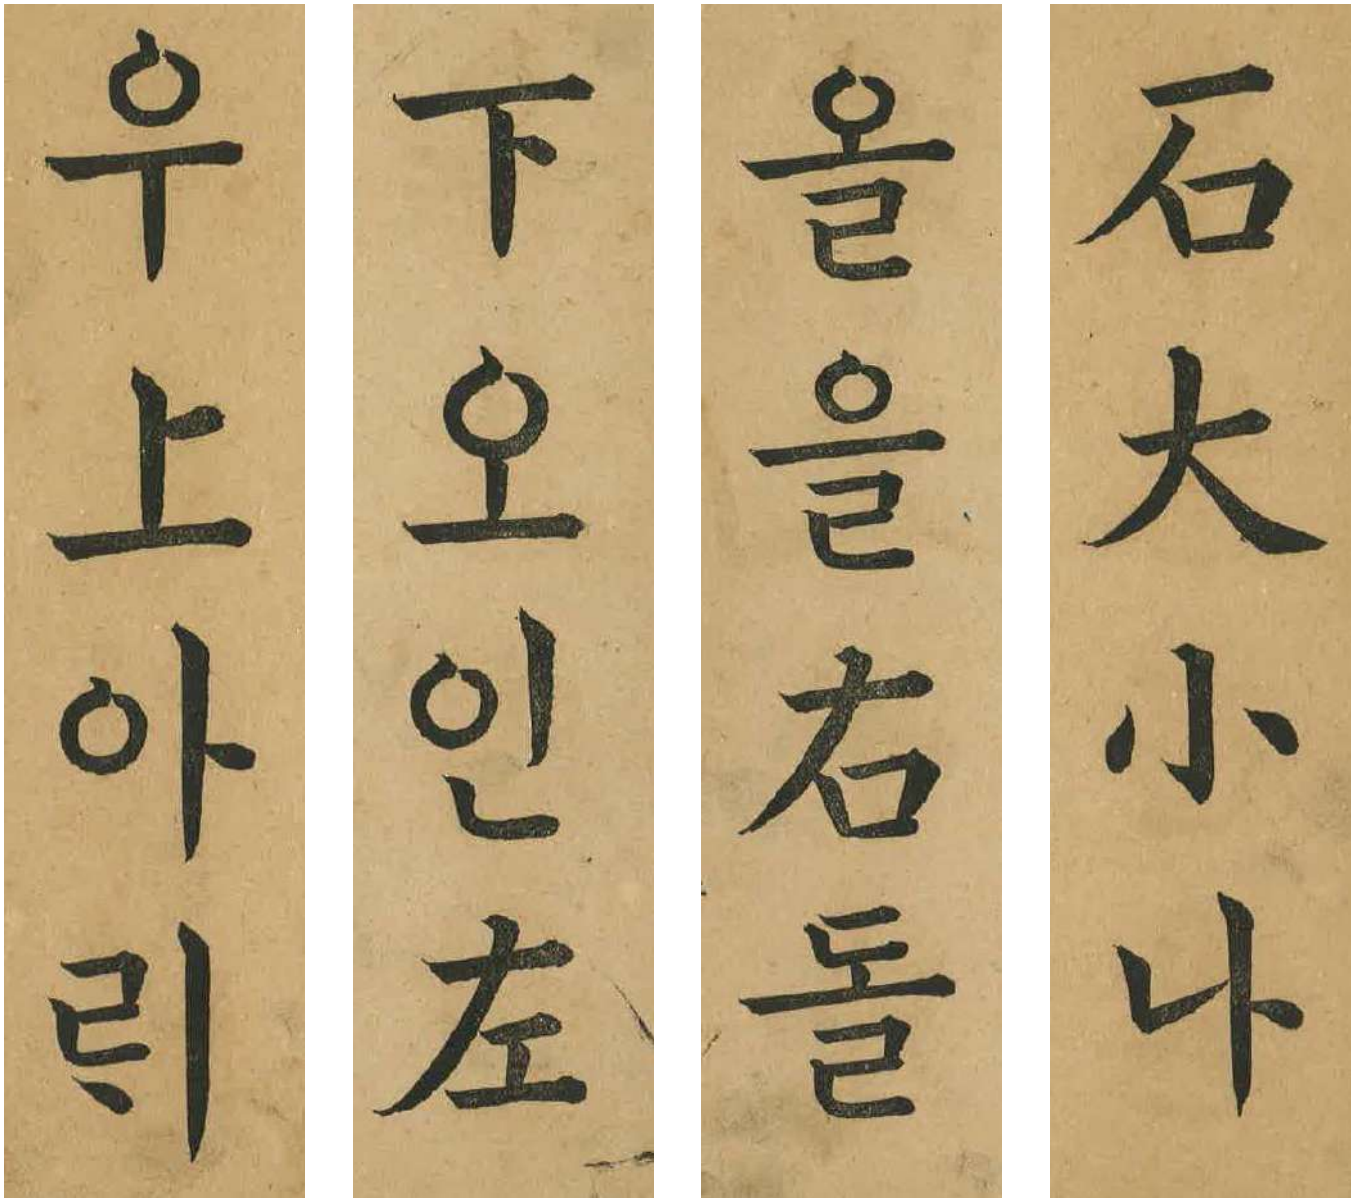 우上아ᄅᆡ
下오인左
올을右돌
石大小나